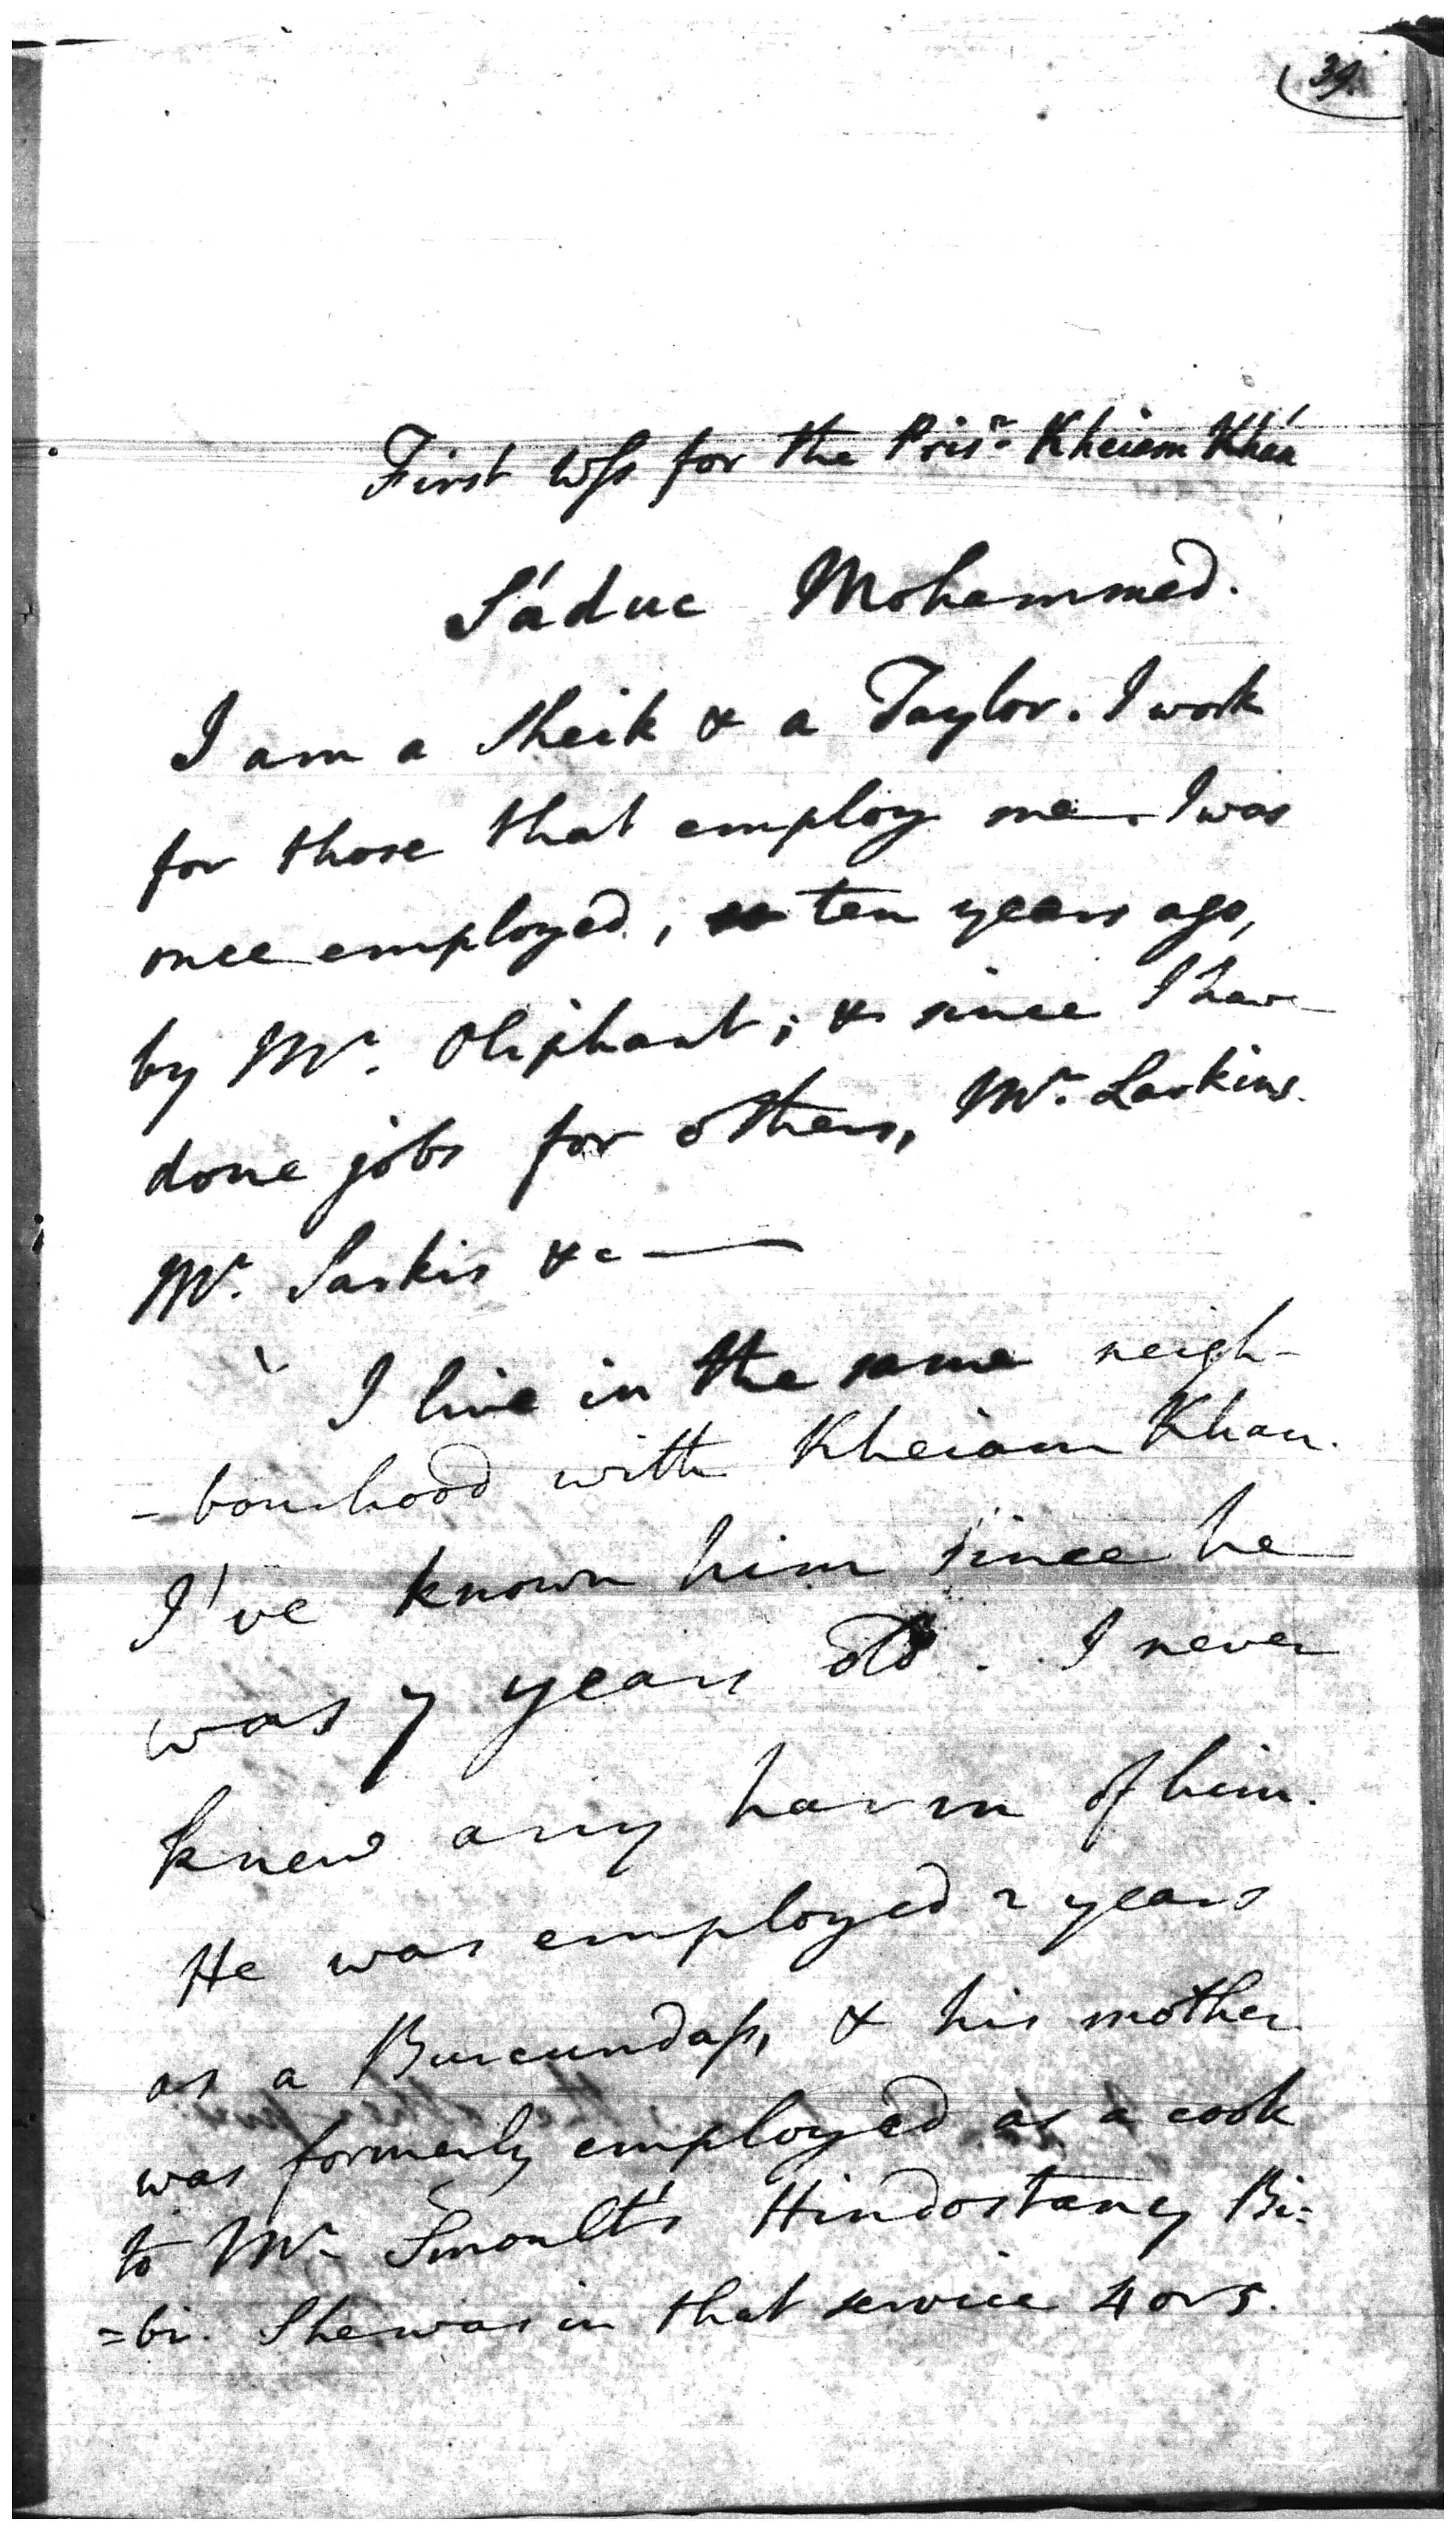 39.
First wss for the Prisr. Kheiam Khán
Sáduc Mohammed.
I am a Sheik & a Taylor. I work
for those that employ me. I was
once employed, ten years ago,
by Mr. Oliphant; & since I have
done jobs for others, Mr. Larkins.
Mr. Sarkis &c
I live in the same neigh-
-bourhood with Kheiam Khan.
I've known him since he
was 7 years old. I never
knew any harm of him.
He was employed 2 years
as a Burcundass, & his mother
was formerly employed as a cook
to Mr Smoult's Hindostany Bi=
=bi. She was in that service 4 or 5.